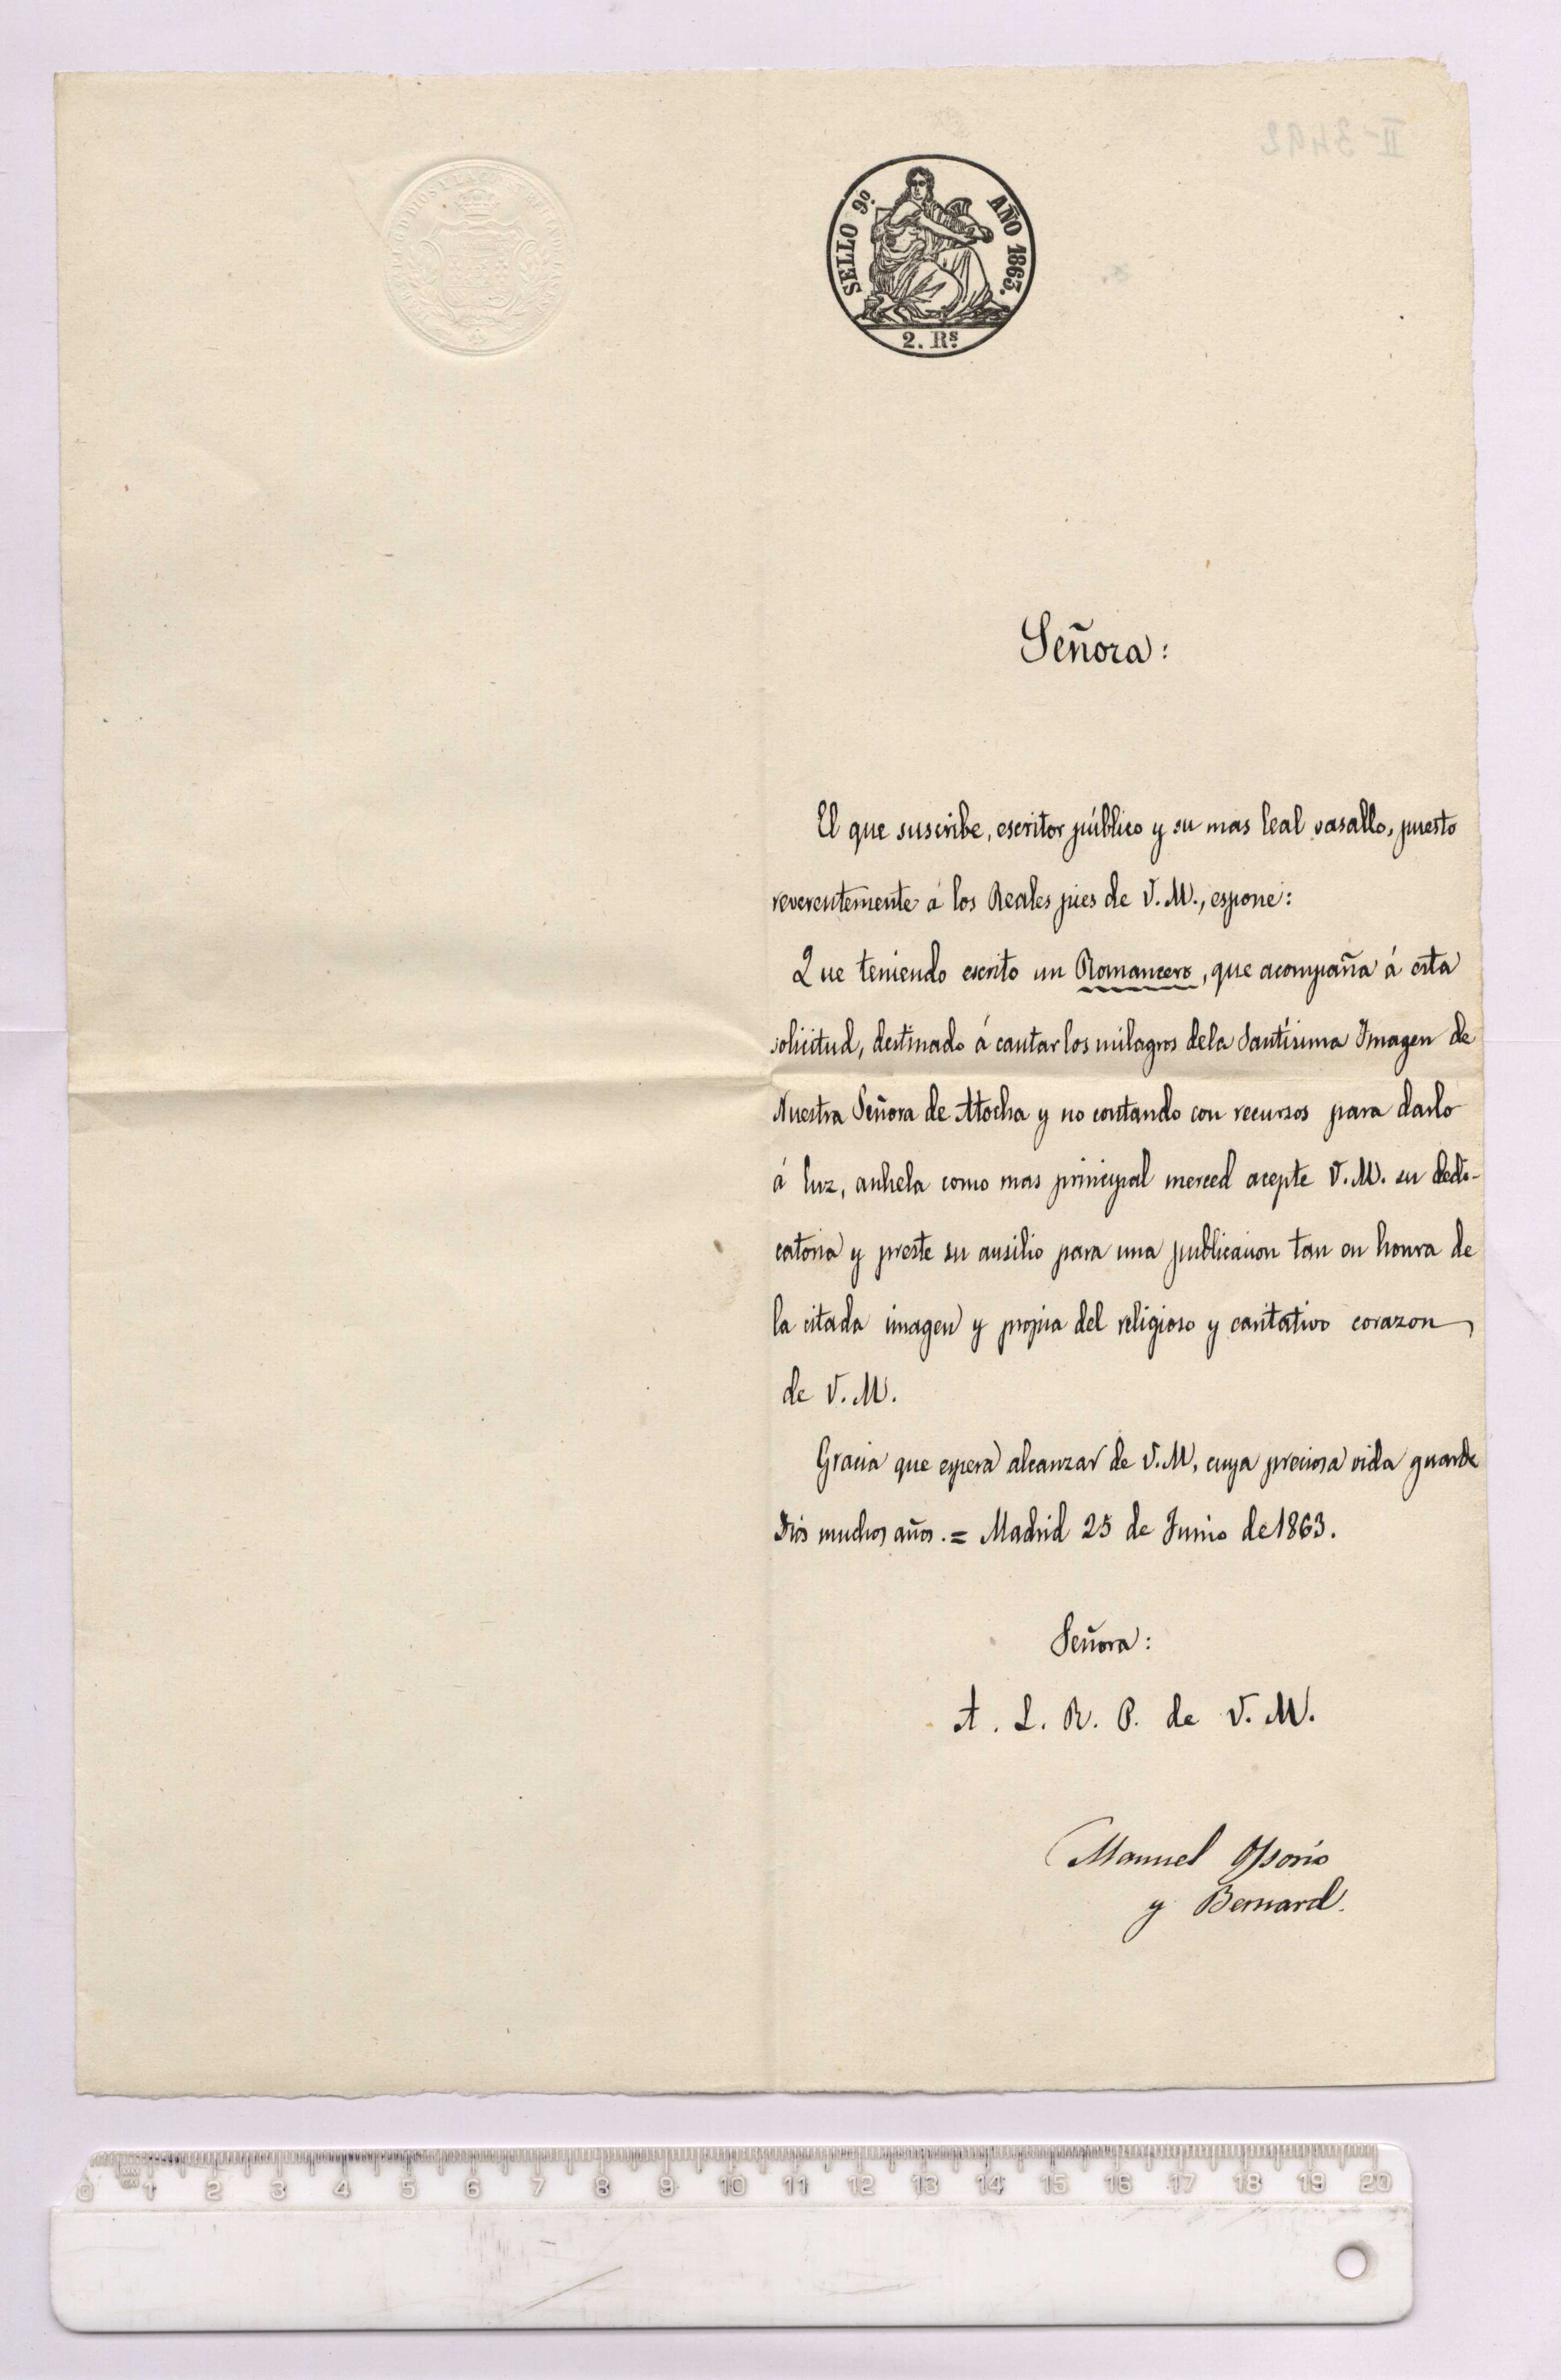 SELLO 9º. AÑO 1863.
2. Rs.
II-3492
Señora:
El que suscribe, escritor público y su mas leal vasallo, puesto
reverentemente á los Reales pies de V. M., espone:
Que teniendo escrito un Romancero, que acompaña á esta
solicitud, destinado á cantar los milagros de la Santísima Imagen de
Nuestra Señora de Atocha y no contando con recursos para darlo
á luz, anhela como mas principal merced acepte V. M. su dedi-
catoria y preste su ausilio para una publicacion tan en honra de
la citada imagen y propia del religioso y caritativo corazon
de V. M.
Gracia que espera alcanzar de V. M, cuya preciosa vida guarde
Dios muchos años. = Madrid 25 de Junio de 1863.
Señora:
A. L. R. P. de V. M.
Manuel Ossorio
y Bernard.
0 1 2 3 4 5 6 7 8 9 10 11 12 13 14 15 16 17 18 19 20